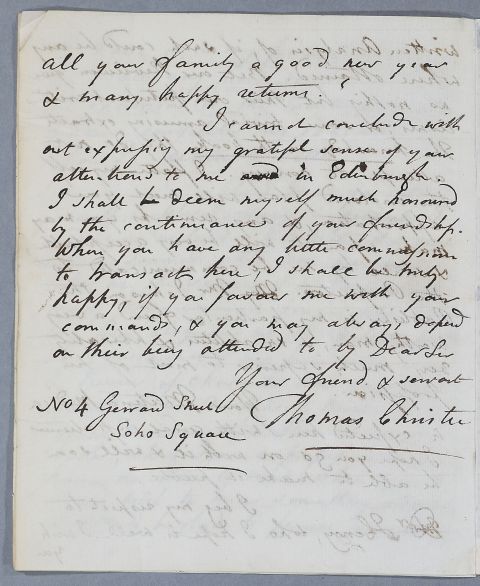 all your family a good new year
& many happy returns "
I cannot conclude with
out expressing my grateful sense of your
attentions to me in Edinburgh.
I shall deem myself much honoured
by the continuance of your friendship.
When you have any little commission
to transact here, I shall be truly
happy, if you favour me with your
commands, & you may always depend
on their being attended to by Dear Sir
Your friend & servant
No 4 Gerrard Street Thomas Christie
Soho Square